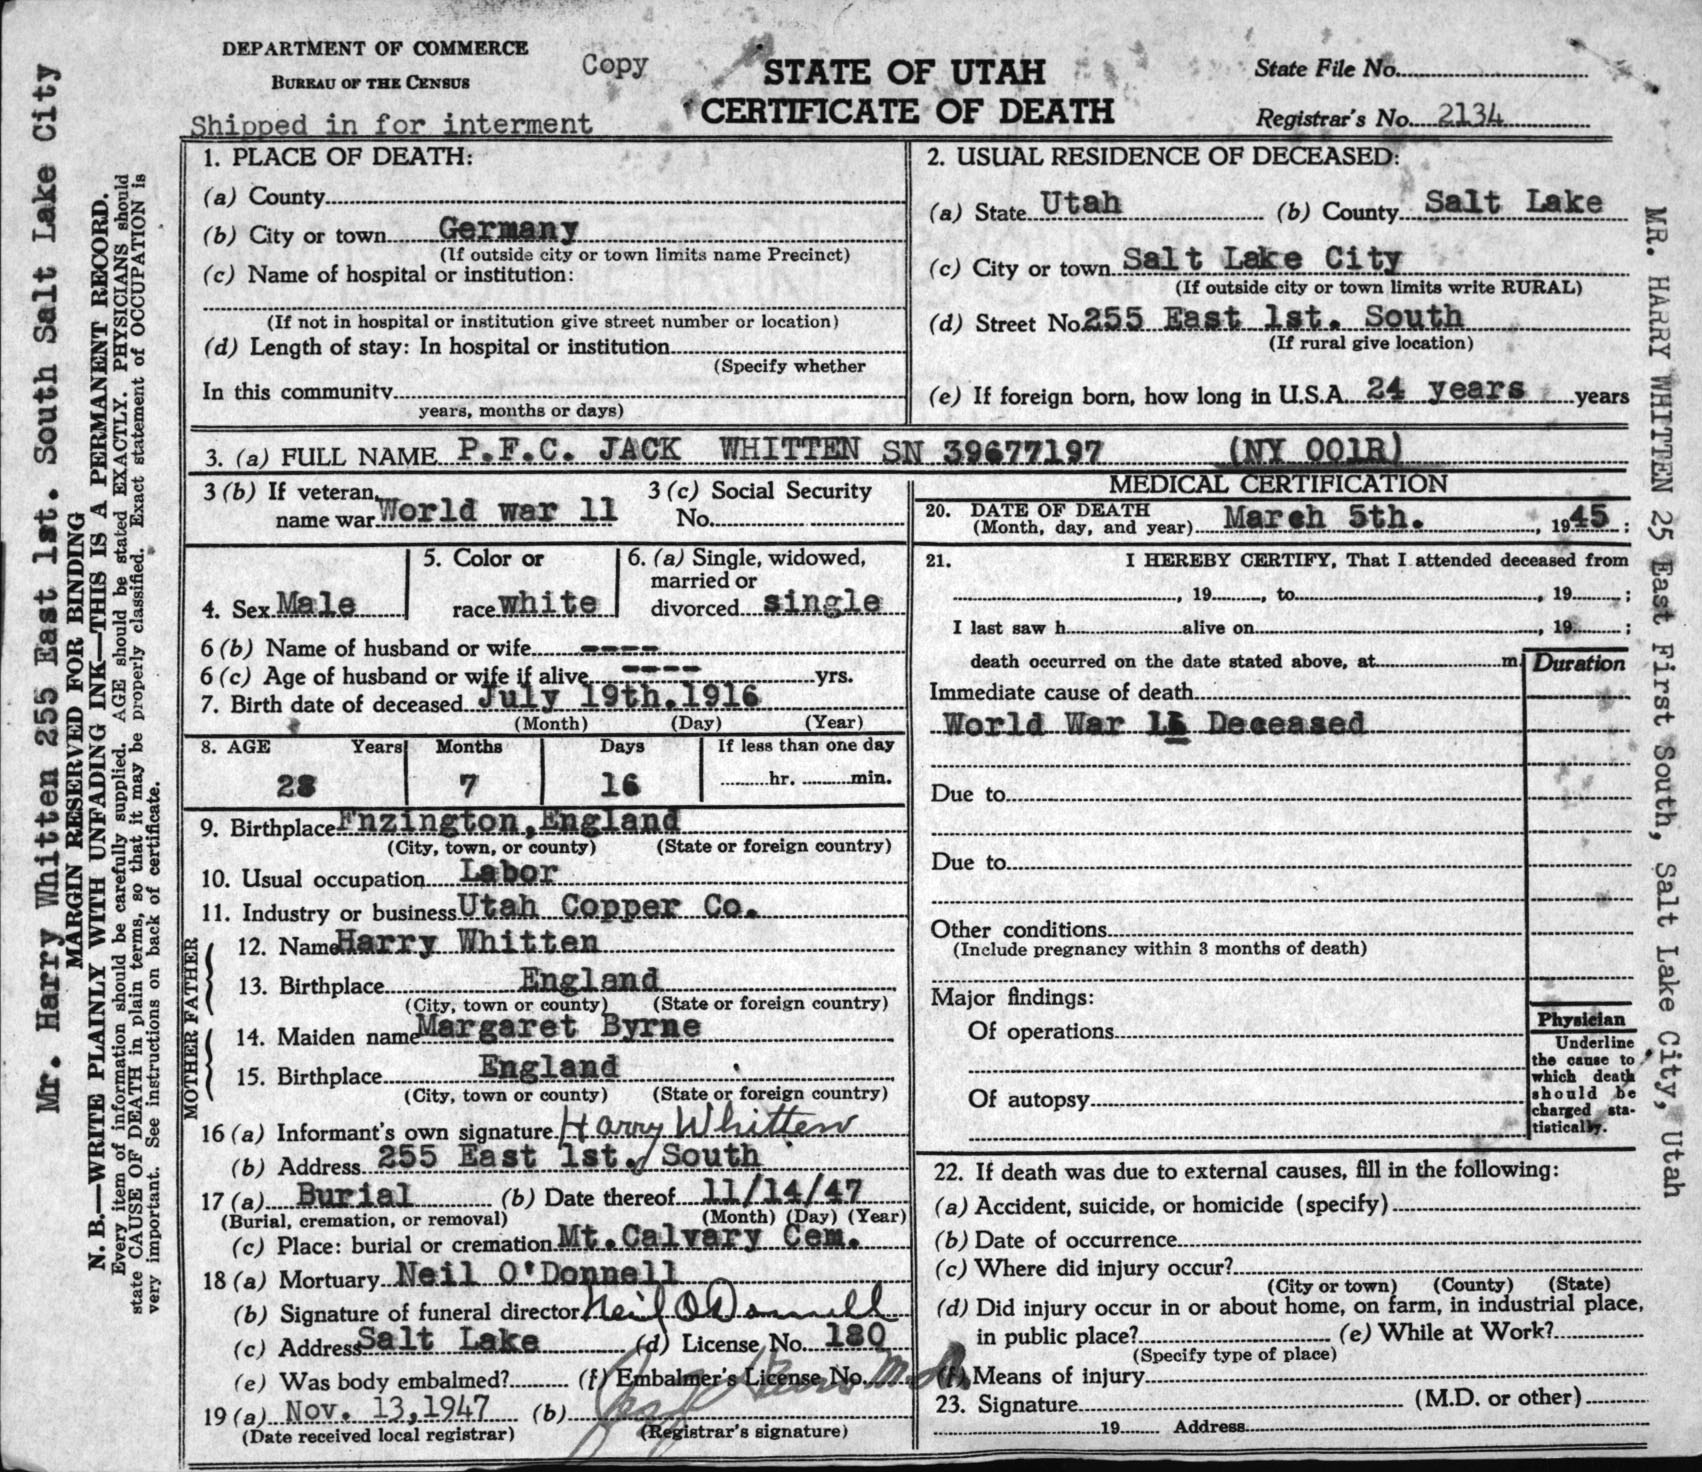 DEPARTMENT OF COMMERCE
BUREAU OF THE CENSUS
Copy
STATE OF UTAH
CERTIFICATE OF DEATH
State File No.
Registrar's No. 2134
Shipped in for interment
1. PLACE OF DEATH:
(a) County
(b) City or town Germany
(If outside city or town limits name Precinct)
(c) Name of hospital or institution:
(If not in hospital or institution give street number or location)
(d) Length of stay: In hospital or institution
(Specify whether
In this community
years, months or days)
2. USUAL RESIDENCE OF DECEASED:
(a) State Utah (b) County Salt Lake
(c) City or town Salt Lake City
(If outside city or town limits write RURAL)
(d) Street No. 255 East 1st. South
(If rural give location)
(e) If foreign born, how long in U.S.A. 24 years years
3. (a) FULL NAME P.F.C. JACK WHITTEN SN 39677197 (NY 001R)
3 (b) If veteran,
name war World war 11
3 (c) Social Security
No.
4. Sex Male
5. Color or
race white
6. (a) Single, widowed,
married or
divorced single
6 (b) Name of husband or wife ----
6 (c) Age of husband or wife if alive ---- yrs.
7. Birth date of deceased July 19th. 1916
(Month) (Day) (Year)
8. AGE Years Months Days If less than one day
28 7 16 hr. min.
9. Birthplace Fnzington, England
(City, town, or county) (State or foreign country)
10. Usual occupation Labor
11. Industry or business Utah Copper Co.
FATHER
12. Name Harry Whitten
13. Birthplace England
(City, town or county) (State or foreign country)
MOTHER
14. Maiden name Margaret Byrne
15. Birthplace England
(City, town or county) (State or foreign country)
16 (a) Informant's own signature Harry Whitten
(b) Address 255 East 1st. South
17 (a) Burial (b) Date thereof 11/14/47
(Burial, cremation, or removal) (Month) (Day) (Year)
(c) Place: burial or cremation Mt. Calvary Cem.
18 (a) Mortuary Neil O'Donnell
(b) Signature of funeral director Neil O'Donnell
(c) Address Salt Lake (d) License No. 180
(e) Was body embalmed? (f) Embalmer's License No.
19 (a) Nov. 13, 1947 (b)
(Date received local registrar) (Registrar's signature)
MEDICAL CERTIFICATION
20. DATE OF DEATH
(Month, day, and year) March 5th. , 1945 ;
21. I HEREBY CERTIFY, That I attended deceased from
, 19 , to , 19 ;
I last saw h alive on , 19 ;
death occurred on the date stated above, at m.
Duration
Immediate cause of death
World War 11 Deceased
Due to
Due to
Other conditions
(Include pregnancy within 3 months of death)
Major findings:
Of operations
Of autopsy
Physician
Underline
the cause to
which death
should be
charged sta-
tistically.
22. If death was due to external causes, fill in the following:
(a) Accident, suicide, or homicide (specify)
(b) Date of occurrence
(c) Where did injury occur?
(City or town) (County) (State)
(d) Did injury occur in or about home, on farm, in industrial place,
in public place? (e) While at Work?
(Specify type of place)
(f) Means of injury
23. Signature (M.D. or other)
19 Address
Mr. Harry Whitten 255 East 1st. South Salt Lake City
MARGIN RESERVED FOR BINDING
N. B.—WRITE PLAINLY WITH UNFADING INK—THIS IS A PERMANENT RECORD.
Every item of information should be carefully supplied. AGE should be stated EXACTLY. PHYSICIANS should
state CAUSE OF DEATH in plain terms, so that it may be properly classified. Exact statement of OCCUPATION is
very important. See instructions on back of certificate.
MR. HARRY WHITTEN 25 East First South, Salt Lake City, Utah